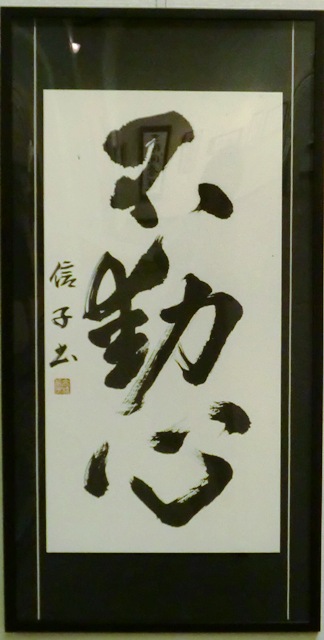 不動心
信子书